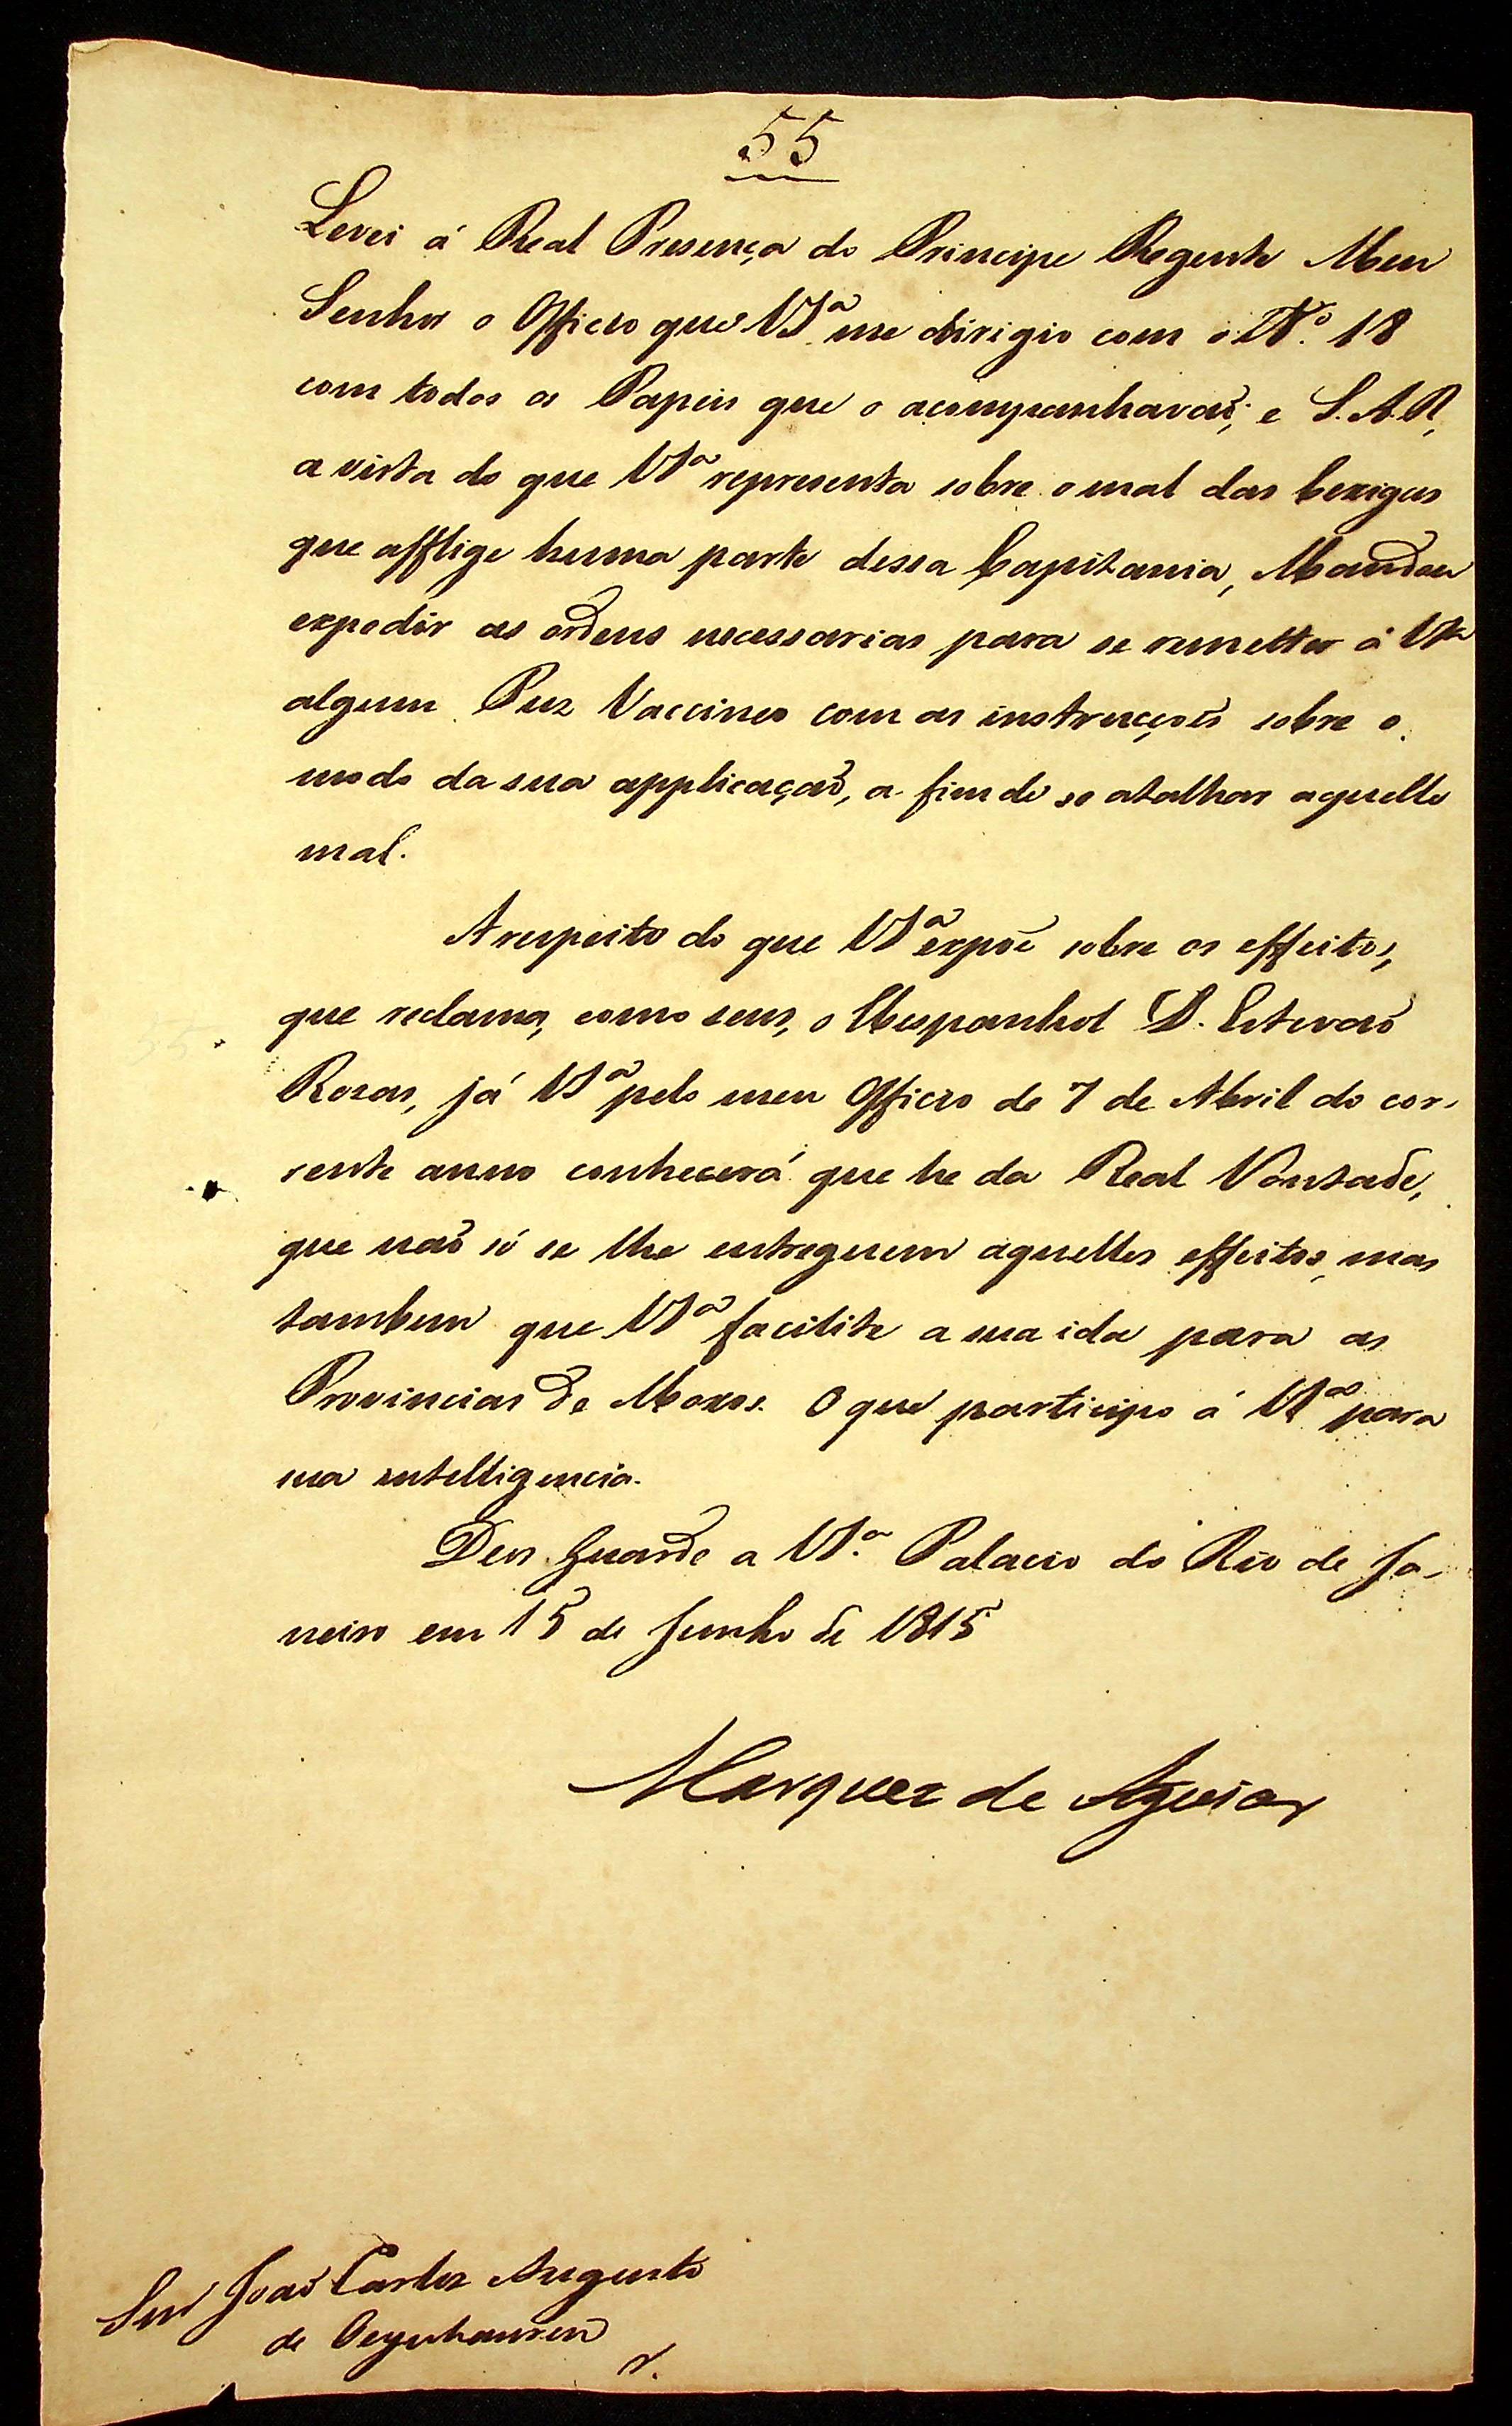 55
Levei á Real Presença do Principe Regente Meu
Senhor o Officio que VSª me dirigio com o Nº. 18
com todos os Papeis que o acompanhavaõ; e S.A.R,
a vista do que VSª representa sobre o mal das bexigas
que afflige huma parte dessa Capitania, Mandou
expedir as ordens necessarias para se remetter á VSª
algum Puz Vaccineo com as instrucçoẽs sobre o
modo da sua applicaçaõ, a fim de se atalhar aquelle
mal.
A respeito do que VSª expoẽ sobre os effeitos,
que reclama, como seus, o Hespanhol D. Estevaõ
Rosas, já VSª pelo meu Officio de 7 de Abril do cor-
rente anno conhecerá que he da Real Vontade,
que naõ só se lhe entreguem aquelles effeitos, mas
tambem que VSª facilite a sua ida para as
Provincias de Moxos. O que participo á VSª para
sua intelligencia.
Deus Guarde a VSª. Palacio do Rio de Ja-
neiro em 15 de Junho de 1815
Marquez de Aguiar
Snr Joaõ Carlos Augusto
de Oeynhausen